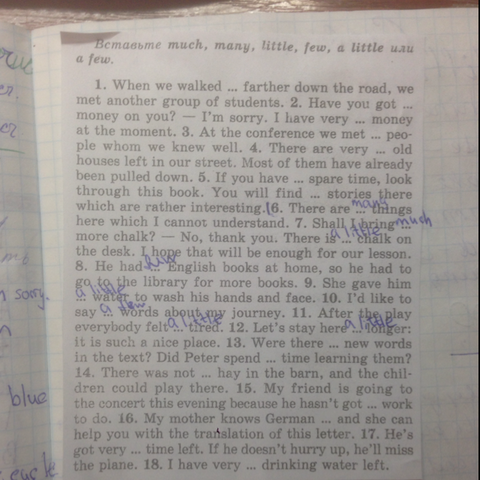 Вставьте much, many, little, few, a little или
a few.
1. When we walked ... farther down the road, we
met another group of students. 2. Have you got ...
money on you? — I'm sorry. I have very ... money
at the moment. 3. At the conference we met ... peo-
ple whom we knew well. 4. There are very ... old
houses left in our street. Most of them have already
been pulled down. 5. If you have ... spare time, look
through this book. You will find ... stories there
many
which are rather interesting. 6. There are ... things
much
here which I cannot understand. 7. Shall I bring ...
a little
more chalk? — No, thank you. There is ... chalk on
the desk. I hope that will be enough for our lesson.
8. He had ... English books at home, so he had to
go to the library for more books. 9. She gave him
a little
... water to wash his hands and face. 10. I'd like to
a few
say ... words about my journey. 11. After the play
a little
everybody felt ... tired. 12. Let's stay here ... longer:
a little
it is such a nice place. 13. Were there ... new words
in the text? Did Peter spend ... time learning them?
14. There was not ... hay in the barn, and the chil-
dren could play there. 15. My friend is going to
the concert this evening because he hasn't got ... work
to do. 16. My mother knows German ... and she can
help you with the translation of this letter. 17. He's
got very ... time left. If he doesn't hurry up, he'll miss
the plane. 18. I have very ... drinking water left.
sorry.
blue